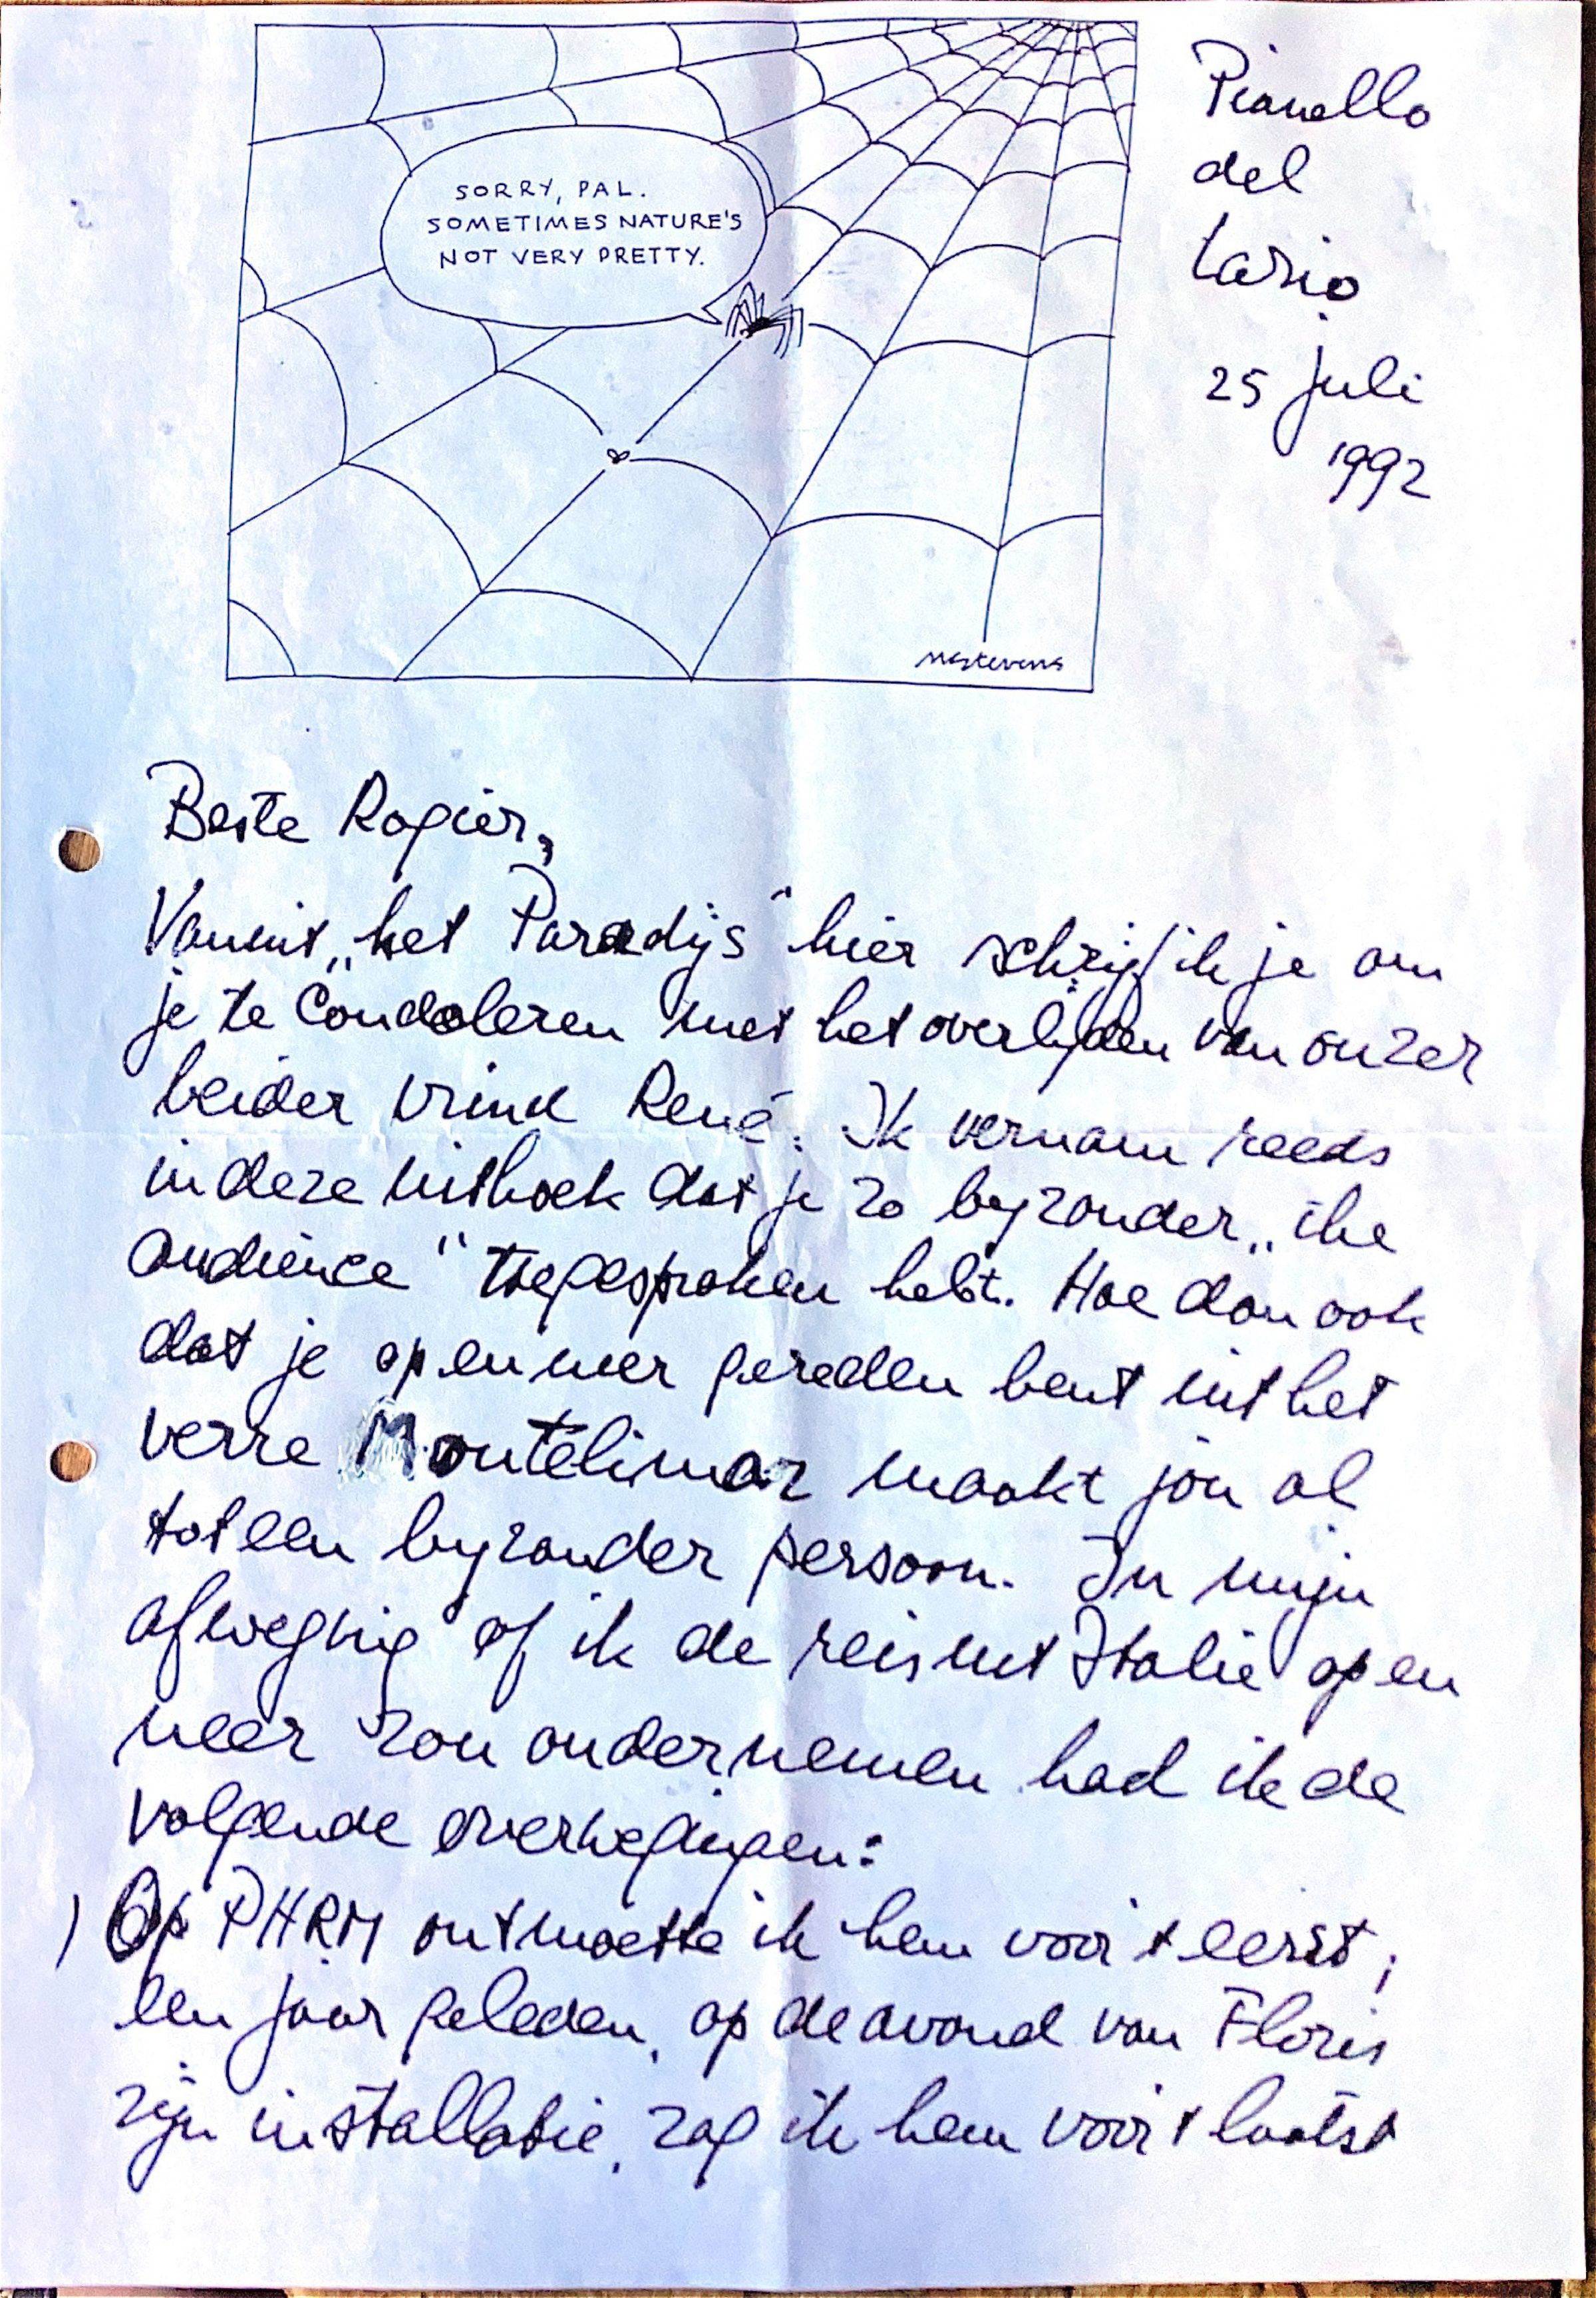 SORRY, PAL.
SOMETIMES NATURE'S
NOT VERY PRETTY.
MStevens
Pianello
del
Lario
25 juli
1992
Beste Rogier,
Vanuit „het Paradijs" hier schrijf ik je om
je te Condoleren met het overlijden van onzer
beider vriend René. Ik vernam reeds
in deze uithoek dat je zo byzonder „the
audience" toegesproken hebt. Hoe dan ook
dat je op en neer gereden bent uit het
verre Montélimar maakt jou al
tot een byzonder persoon. In mijn
afweging of ik de reis uit Italië op en
neer zou ondernemen had ik de
volgende overwegingen:
) Op PHRM ontmoette ik hem voor 't eerst;
een jaar geleden, op de avond van Floris
zijn installatie, zag ik hem voor 't laatst